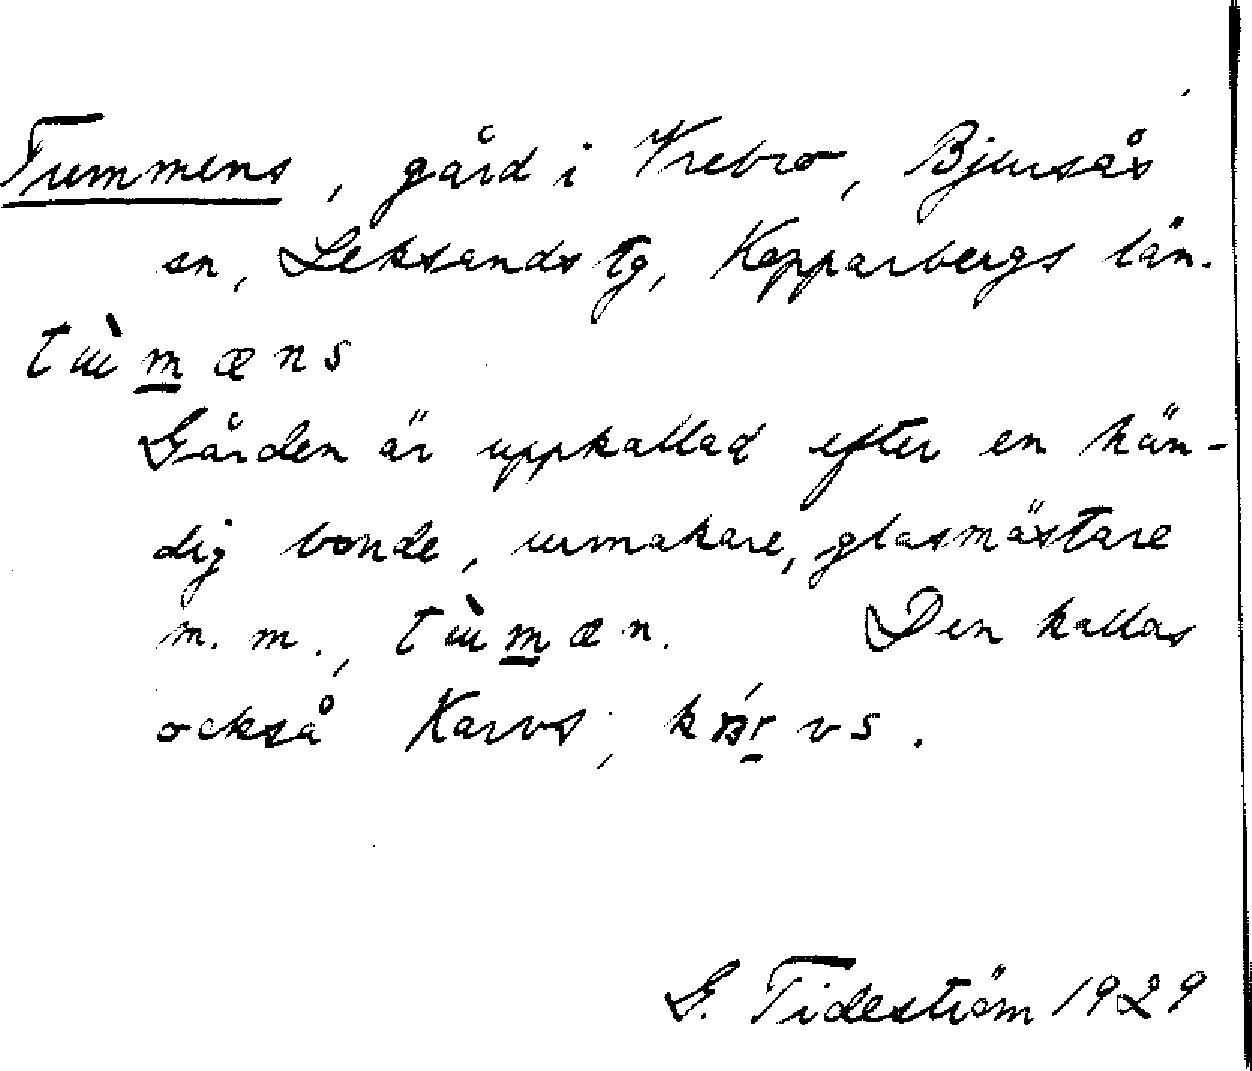 Tummens, gård i Vrebro, Bjursås
sn, Leksands tg, Kopparbergs län.
tɯ̀m̲æns
Gården är uppkallad efter en hän-
dig bonde, urmakare, glasmästare
m. m., tɯ̀m̲æn. Den kallas
också Karvs,
G. Tideström 1929